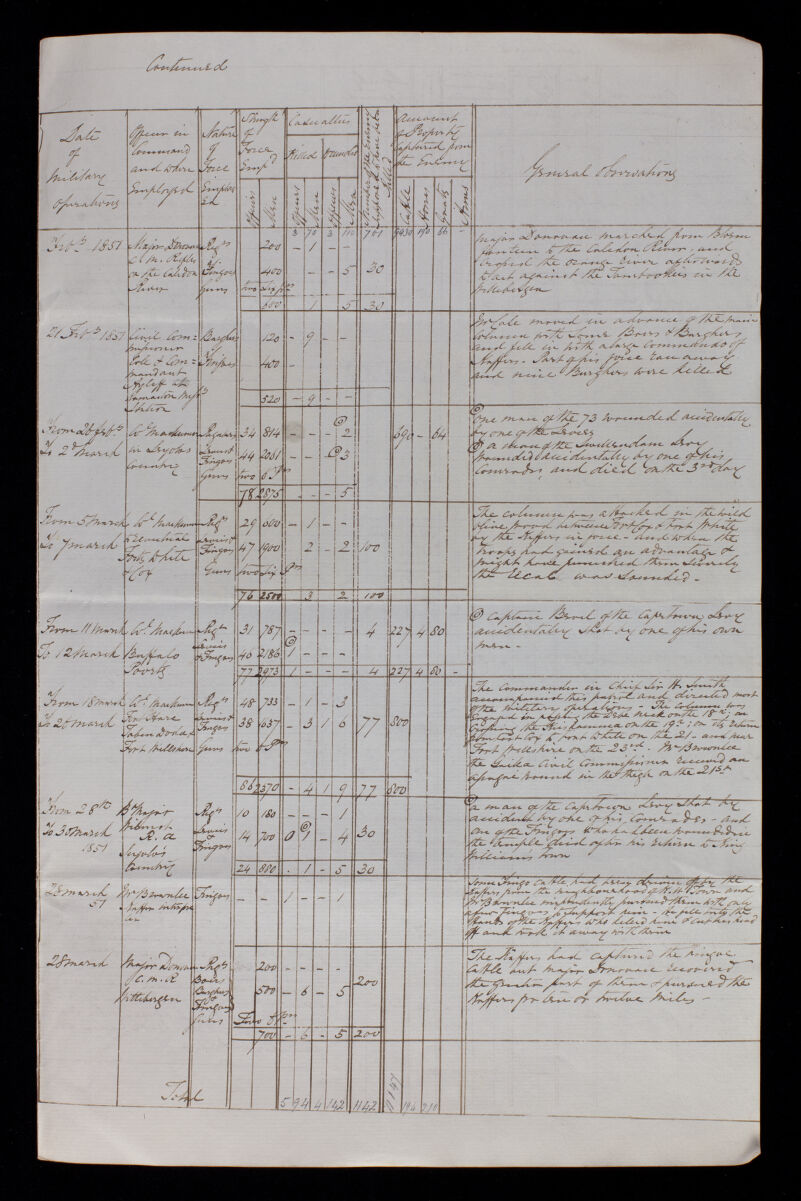 Continued
Date of Military Operations
Officer in Command and where Employed
Nature of Force Employed
Strength of Force Emp'd
Officers
Men
Casualties
Killed
Wounded
Officers
Men
Officers
Men
Number of the Enemy
Killed
Amount of Property Captured from the Enemy
Cattle
Horses
Goats
Arms
General Observations
3 70 3 110 701 9430 190 66 -
Feb'y 1851
Major Donovan
C. M. Rifles
on the Caledon
River
Reg'rs
Fingoes
Guns
200 - 1 - -
400 - - - 5 30
two six p'rs
600 1 5 30
Major Donovan marched from Bloem
fontein to the Caledon River, and
crossed the Orange River afterwards
to act against the Tambookies in the
Wittebergen
21 Feb'y 1851
Civil Com=
missioner
Cole & Com=
mandant
Station
Burghers
120 - 9 - -
400 -
520 - 9 - -
Mr Cole moved in advance of the main
column with some Boers & Burghers
and fell in with a large Commando of
Kaffirs. Part of his force ran away
and nine Burghers were killed
From 26 Feb'y
To 2d March
Col. Mackinnon
in Seyolos
Country
Regulars
Levies &
Fingoes
Guns
34 814 - - - 2 690 - 64
44 2061 - - - 3
two 6 P'rs
78 2875 - - - 5
One man of the 73 wounded accidentally
by one of the Levies
a man of the Swellendam Levy
wounded accidentally by one of his
Comrades, and died on the 3rd day
From 5 March
To 7 March
Col. Mackinnon
Forts White
& Cox
Reg'rs
Levies &
Fingoes
Guns
29 600 - 1 - -
47 1900 2 - 2 100
two six P'rs
76 2500 3 2 100
The column was attacked in the wild
olive wood between Fort Cox & Fort White
by the Kaffirs in force - and when the
troops had gained an advantage &
might have punished them severely
the recall was sounded -
From 11 March
To 12 March
Col. Mackinnon
Buffalo
Poorts
Reg'rs
Levies
& Fingoes
31 787 - - - - 4 227 4 80
40 2186 1 - - -
77 2973 1 - - - 4 227 4 80 -
Captain Bred of the Cape Town Levy
accidentally shot by one of his own
men -
From 18 March
To 20 March
Col. Mackinnon
Fort Hare
Tabendoda &
Fort Willshire
Reg'rs
Levies &
Fingoes
Guns
48 733 - 1 - 3
38 1637 - 3 1 6 77 800
two 6 P'rs
86 2370 - 4 1 9 77 800
The Commander in Chief Sir H. Smith
accompanied this patrol and directed most
of the military operations - The column was
engaged in passing the Debe Neck on the 18th; on
crossing the Keiskamma on the 19th; on its return
from Fort Cox to Fort White on the 21 - and near
Fort Willshire on the 23rd. Mr Brownlee
the Gaika Civil Commissioner received an
assegai wound in the thigh on the 21st
From 28th
To 30 March
1851
B't Major
Wilmot
R. A
Seyolo's
Country
Reg'rs
Levies
Fingoes
10 180 - - - 1
14 700 0 1 - 4 30
24 880 . 1 - 5 30
a man of the Cape Town Levy shot by
accident by one of his Comrades - and
one of the Fingoes who had been wounded in
the temple died after his return to King
Williams Town
28 March
51
Mr Brownlee
Kaffir Interpre
ter
Fingoes
- - 1 - - 1
Some Fingo Cattle had been driven off by the
Kaffirs from the neighbourhood of K. W. Town and
Mr Brownlee imprudently pursued them with only
a few Fingoes to support him - he fell into the
hands of the Kaffirs who killed him & cut his head
off and took it away with them
28 March
Major Donovan
C. M. R
Wittebergen
Reg'rs
Boers
Burghers
& Fingoes
Guns
200 - - - -
500 - 6 - 5 200
Two 6 P'rs
700 - 6 - 5 200
The Kaffirs had captured the Fingoe
Cattle but Major Donovan recovered
the greater part of them & pursued the
Kaffirs for ten or twelve miles -
Total
5 94 4 142 1142